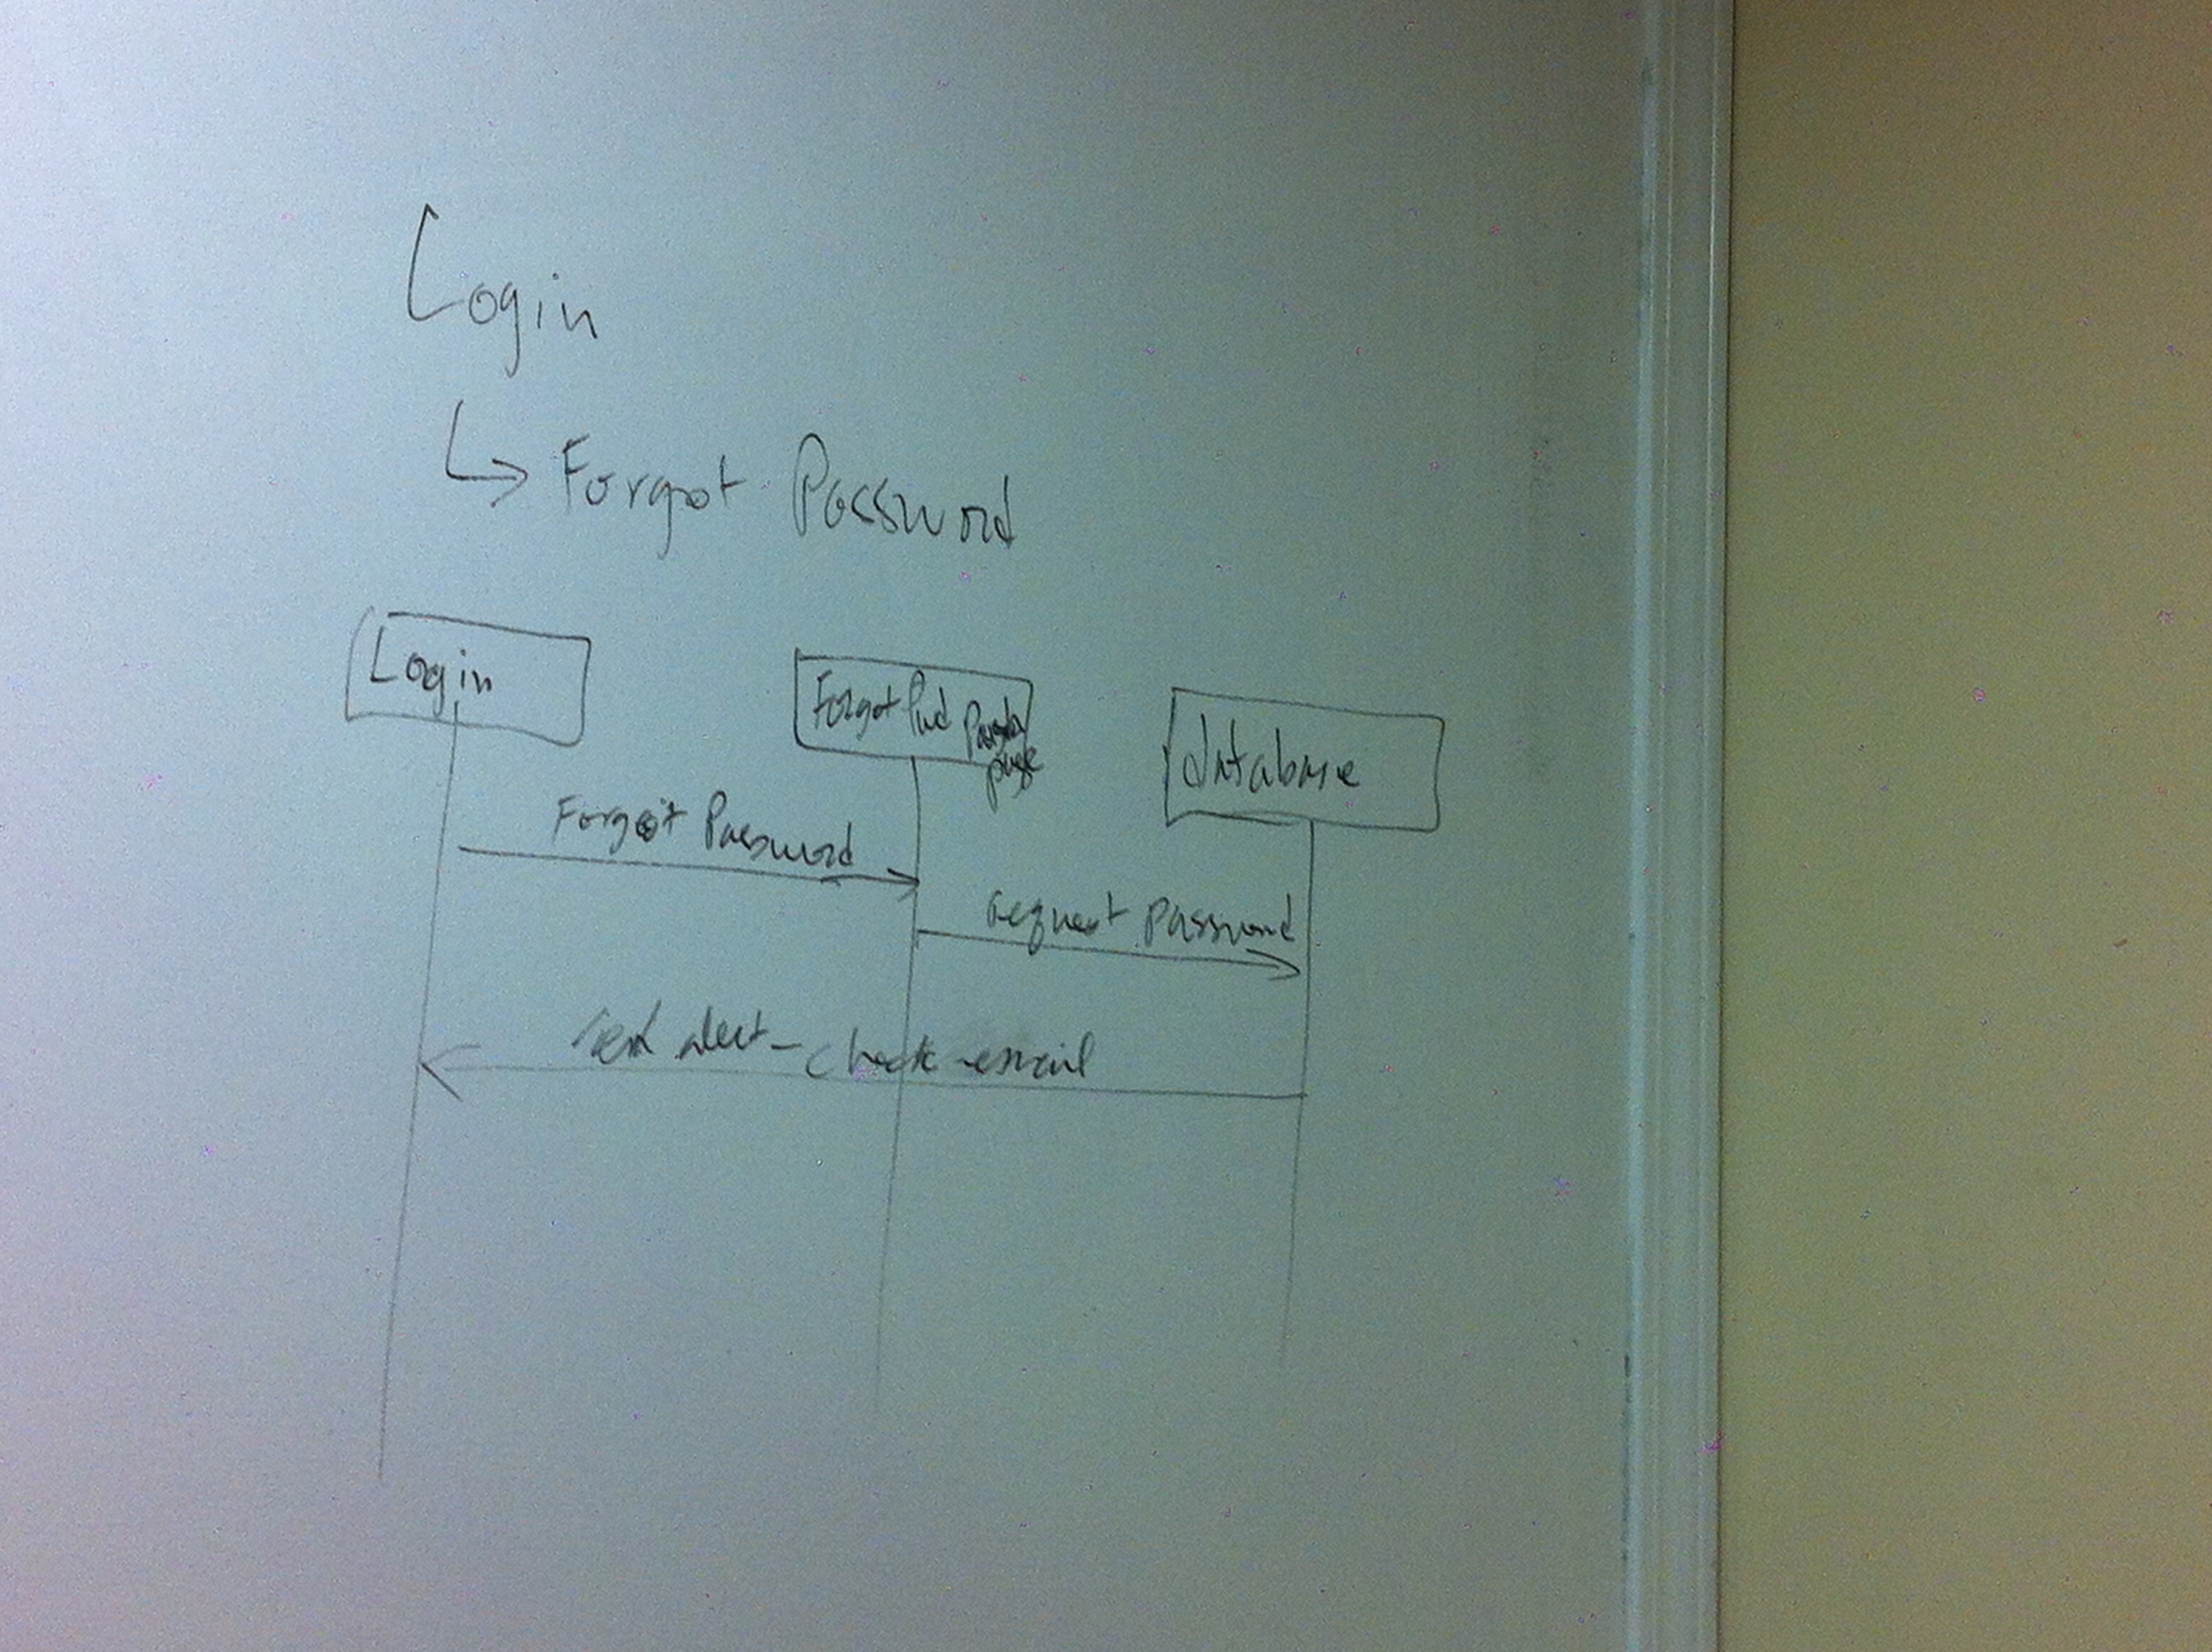 Login
Forgot Password
Login
Forgot Pwd
page
database
Forgot Password
request password
send alert - check email